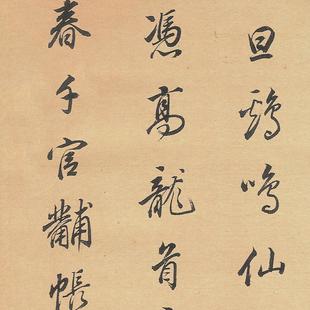 旦鷄鳴仙
憑高龍首
春千官黼帳